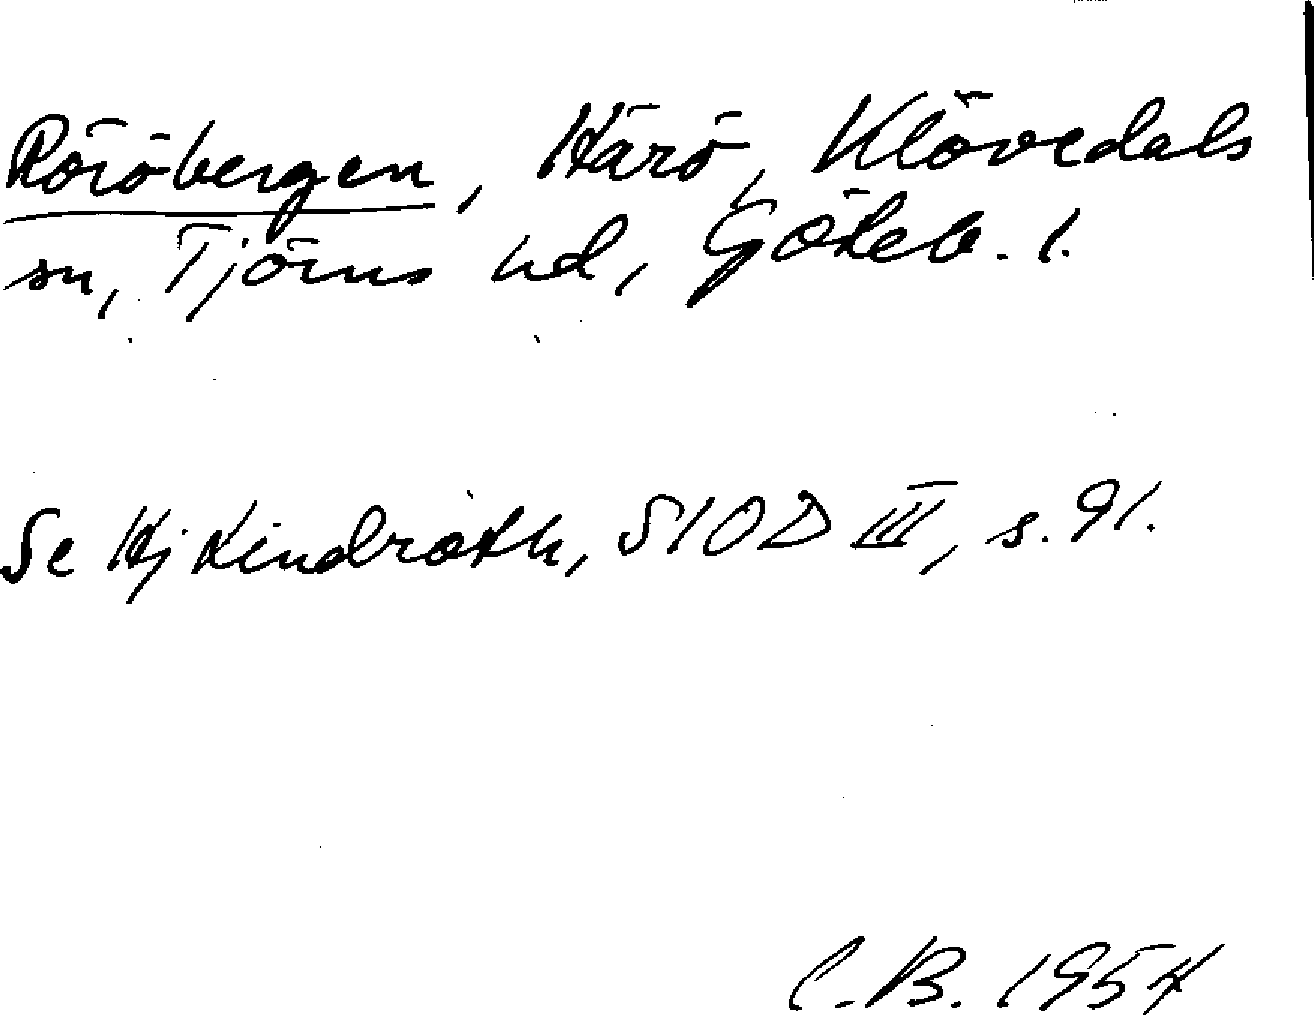 Röröbergen, Härö, Klövedals
sn, Tjörns hd, Göteb. l.
Se Hj Lindroth, SIOD III, s. 91.
C.B. 1954